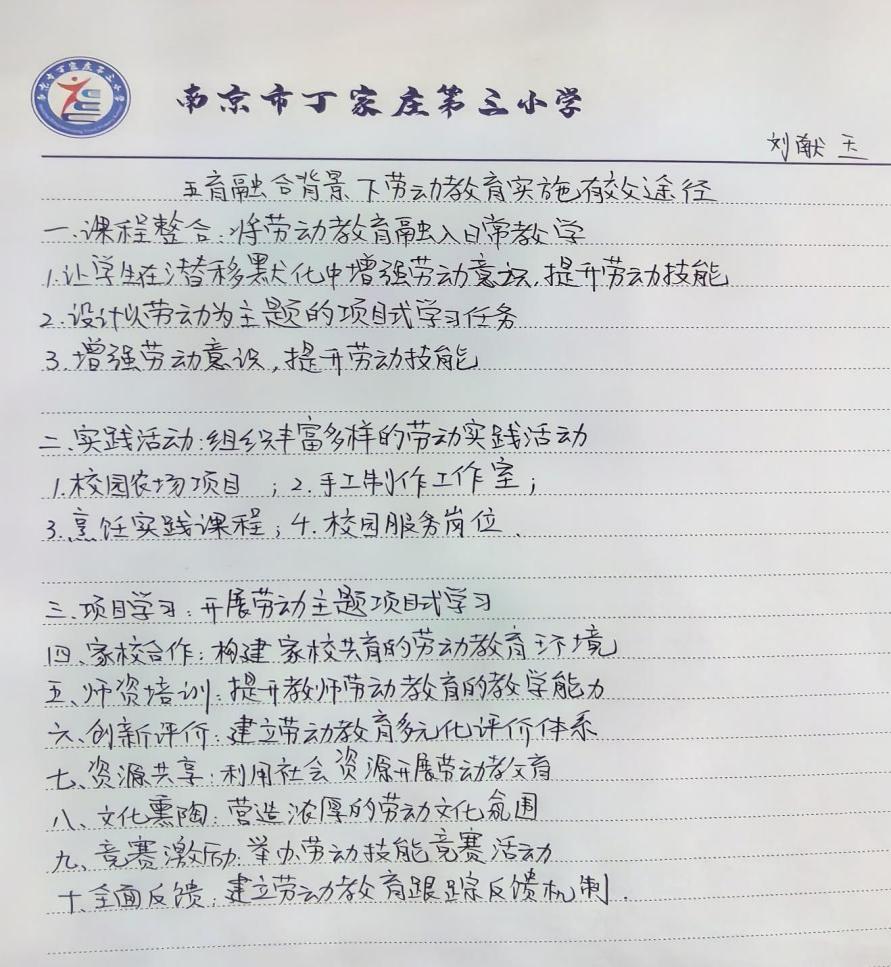 南京市丁家庄第三小学
南京市丁家庄第三小学
刘献王
五育融合背景下劳动教育实施有效途径
一、课程整合：将劳动教育融入日常教学
1.让学生在潜移默化中增强劳动意识,提升劳动技能
2.设计以劳动为主题的项目式学习任务
3.增强劳动意识,提升劳动技能
二、实践活动：组织丰富多样的劳动实践活动
1.校园农场项目 ；2.手工制作工作室；
3.烹饪实践课程；4.校园服务岗位、
三、项目学习：开展劳动主题项目式学习
四、家校合作：构建家校共育的劳动教育环境
五、师资培训：提升教师劳动教育的教学能力
六、创新评价：建立劳动教育多元化评价体系
七、资源共享：利用社会资源开展劳动教育
八、文化熏陶：营造浓厚的劳动文化氛围
九、竞赛激励：举办劳动技能竞赛活动
十、全面反馈：建立劳动教育跟踪反馈机制.